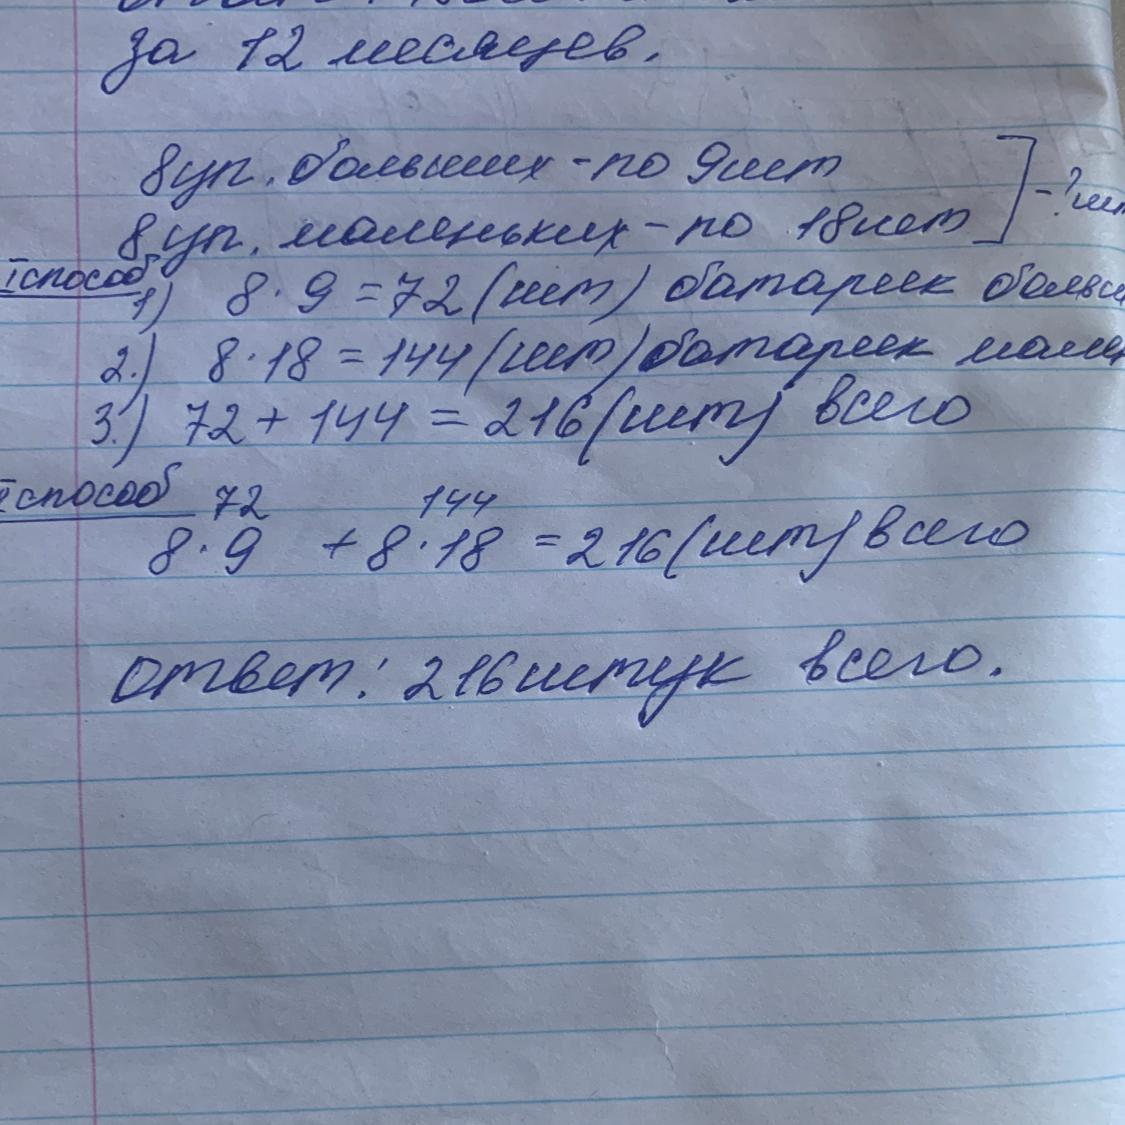 за 12 месяцев.
8уп. больших - по 9шт
8 уп. маленьких - по 18шт ] - ? шт
I способ
1) 8 · 9 = 72 (шт) батареек больш
2.) 8 · 18 = 144 (шт) батареек мален
3.) 72 + 144 = 216 (шт) всего
I способ 72 144
8 · 9 + 8 · 18 = 216 (шт) всего
Ответ: 216 штук всего.